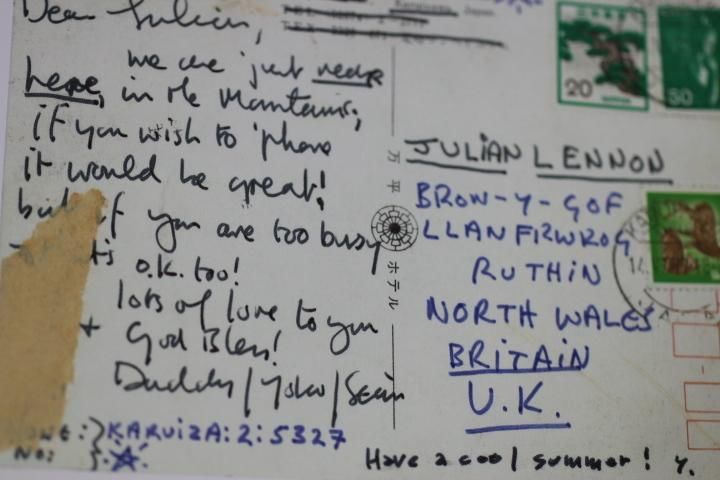 Dear Julian,
we are just
here, in the Mountains;
if you wish to 'phone
it would be great!
but if you are too busy
it's o.k. too!
lots of love to you
+ God Bless!
Daddy/Yoko/Sean
KARUIZA: 2: 5327
NO:
万平ホテル
20
NIPPON
50
JULIAN LENNON
BRON-Y-GOF
LLANFIRWROG
RUTHIN
NORTH WALES
BRITAIN
U.K.
Have a cool summer! y.